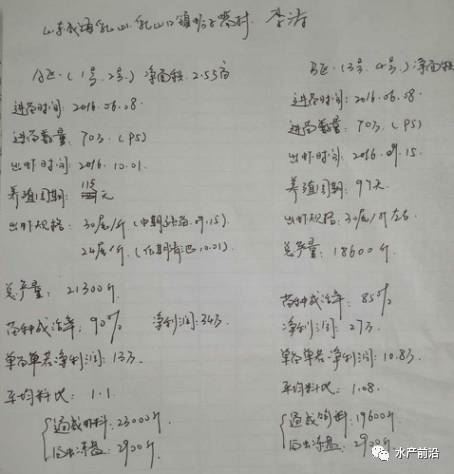 山东威海乳山 乳山口镇 村 李涛
A区.(1号、2号) 净面积 2.55亩
进苗时间: 2016.06.08.
进苗数量: 70万.(P5)
出虾时间: 2016.10.01.
养殖周期: 115天
出虾规格: 30尾/斤(中期 09.15)
24尾/斤.(后期清池 10.01)
总产量: 21300斤.
苗种成活率: 90% 净利润: 34万.
单亩单茬净利润: 13万.
平均料比: 1.1
通威虾料: 23000斤
2900斤.
B区.(3号、4号.) 净面积
进苗时间: 2016.06.08.
进苗数量: 70万.(P5)
出虾时间: 2016.09.15.
养殖周期: 97天
出虾规格: 30尾/斤左右
总产量: 18600斤
苗种成活率: 85%
净利润: 27万.
单亩单茬净利润: 10.8万.
平均料比: 1.08.
通威虾料: 19600斤
2900斤
水产前沿